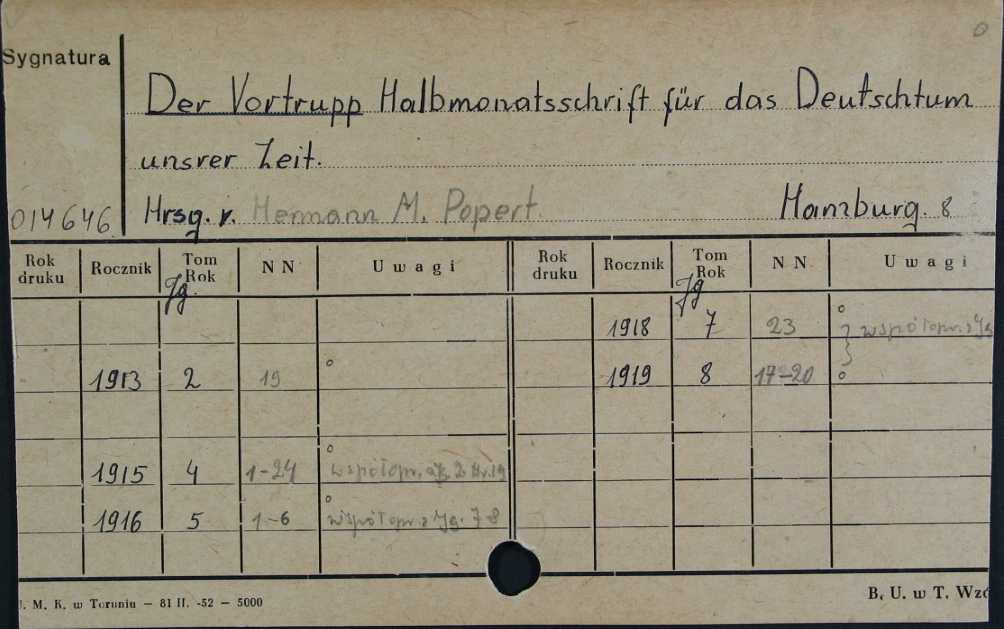 Sygnatura
Der Vortrupp Halbmonatsschrift für das Deutschtum
unsrer Zeit.
014646 Hrsg. v. Hermann M. Popert. Hamburg. 8
Rok druku Rocznik Tom Rok Jg. N N Uwagi Rok druku Rocznik Tom Rok Jg N N Uwagi
1918 7 23 } współopr. z Jg
1913 2 19 1919 8 17-20
1915 4 1-24 współopr. 2 Nr. 19
1916 5 1-6 współopr. z Jg. 7 8
J. M. K. w Toruniu — 81 II. -52 — 5000 B. U. w T.